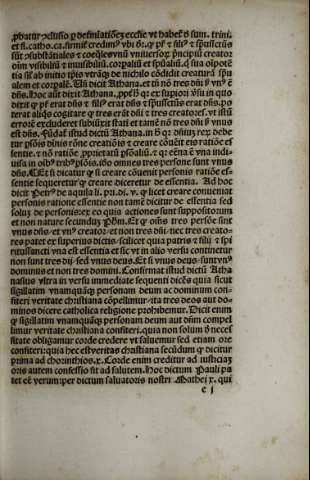 ꝓbatur ꝯcluſio ꝑ deſinitiõeʒ eccleſie vt habet᷑ ð ſum. trini.
et fi. catho. ca. firmit᷑ credimꝰ vbi dr̄. ꝙ pr̄ ⁊ filiꝰ ⁊ ſpuſſctūs
ſūt ꝯſubſtātiales ⁊ coeq̄les vnū vniuerſoꝝ pͥncipiū creator
oīm viſibiliū ⁊ inuiſibiliū. corꝑaliū et ſpūaliū. q̄ ſua oīpotē
tia ſil᷑ ab initio tꝑis vtrāqꝫ de nichilo cōdidit creaturā ſpū
alem et corpalē. Uñ dicit Athana. et tñ nō tres dñi ſʒ vnꝰ ē
dñs. Hoc aūt dixit Athana. qꝛ ex
dixit ꝙ pr̄ erat dñs ⁊ filiꝰ erat dñs ⁊ ſpūſſctūs erat dñs. po
terat aliqs cogitare ꝙ tres erāt dñi ⁊ tres creatores. vt iſtū
errorē excluderet ſubiūxit ſtati et tamē nō tres dñi ſʒ vnus
eſt dñs. iſtud dictū Athana. in ꝙ rex debe
tur ꝑſōis dīnis rōne creatiōis ⁊ creare cōuēit eis ratiōe eſ
ſentie. ⁊ nō ratiōe ꝓprietatū ꝑſōaliū. ⁊ qꝛ eēna ē vna indi-
uiſa in oībꝫ tribꝫ ꝑſōis. iō omnes tres perſone ſunt vnus
dñs. Et ſi dicatur ꝙ ſi creare cōuenit perſonis ratiōe eſ-
ſentie ſequeretur ꝙ creare diceretur de eſſentia. Ad hoc
dicit Petrꝰ de aquila li. pri. di. v. ꝙ licet creare conueniat
perſonis ratione eſſentie non tamē dicitur de eſſentia ſed
soluʒ de perſonis eo quia actiones ſunt ſuppoſitorum
et non nature ſecunduʒ Pħm. Et ꝙ oēs tres perſōe ſint
vnus dñs et vnꝰ creator et non tres dñi nec tres creato-
res patet ex ſuperius dictis ſcilicet quia patris ⁊ filii ⁊ ſpi
rituſſancti vna eſt eſſentia et ſic vt in alio verſu continetur
non ſunt tres dij ſed vnus deus. Et ſi vnus deus ſunt vnꝰ
dominus et non tres domini. Confirmat iſtud dictū Atha
naſius vltra in verſu immediate ſequenti dicēs quia ſicut
ſigillatim vnamquāqꝫ perſonam deum ac dominum con-
fiteri veritate chriſtiana cōpellimur ita tres deos aut do-
minos dicere catholica religione prohibemur. Dicit enim
ꝙ ſigillatim vnamquāqꝫ perſonam deum aut dñm compel
limur veritate chriſtiana confiteri. quia non ſolum ð neceſ
ſitate obligamur corde credere vt ſaluemur ſed etiam ore
confiteri: quia hec eſt veritas chriſtiana ſecūdum ꝙ dicitur
prima ad chorinthios. x. Corde enim creditur ad iuſticiaʒ
oris autem confeſſio fit ad ſalutem. Hoc dictum Pauli pa
tet eē verum per dictum ſaluatoris noſtri Mathei x. qui
c j